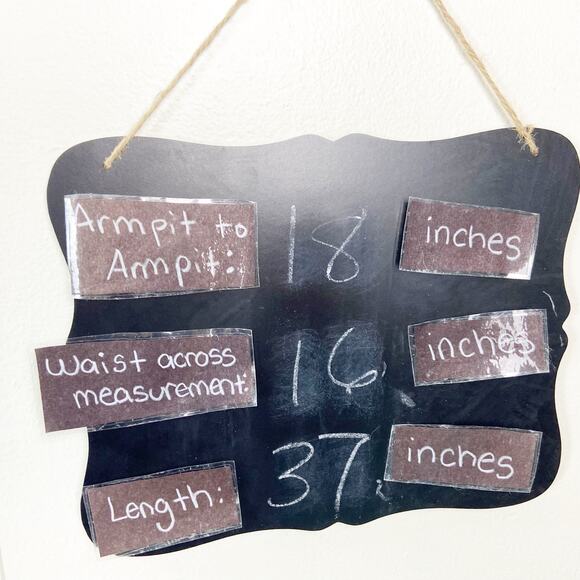 Armpit to
Armpit: 18 inches
Waist across
measurement: 16 inches
Length: 37 inches